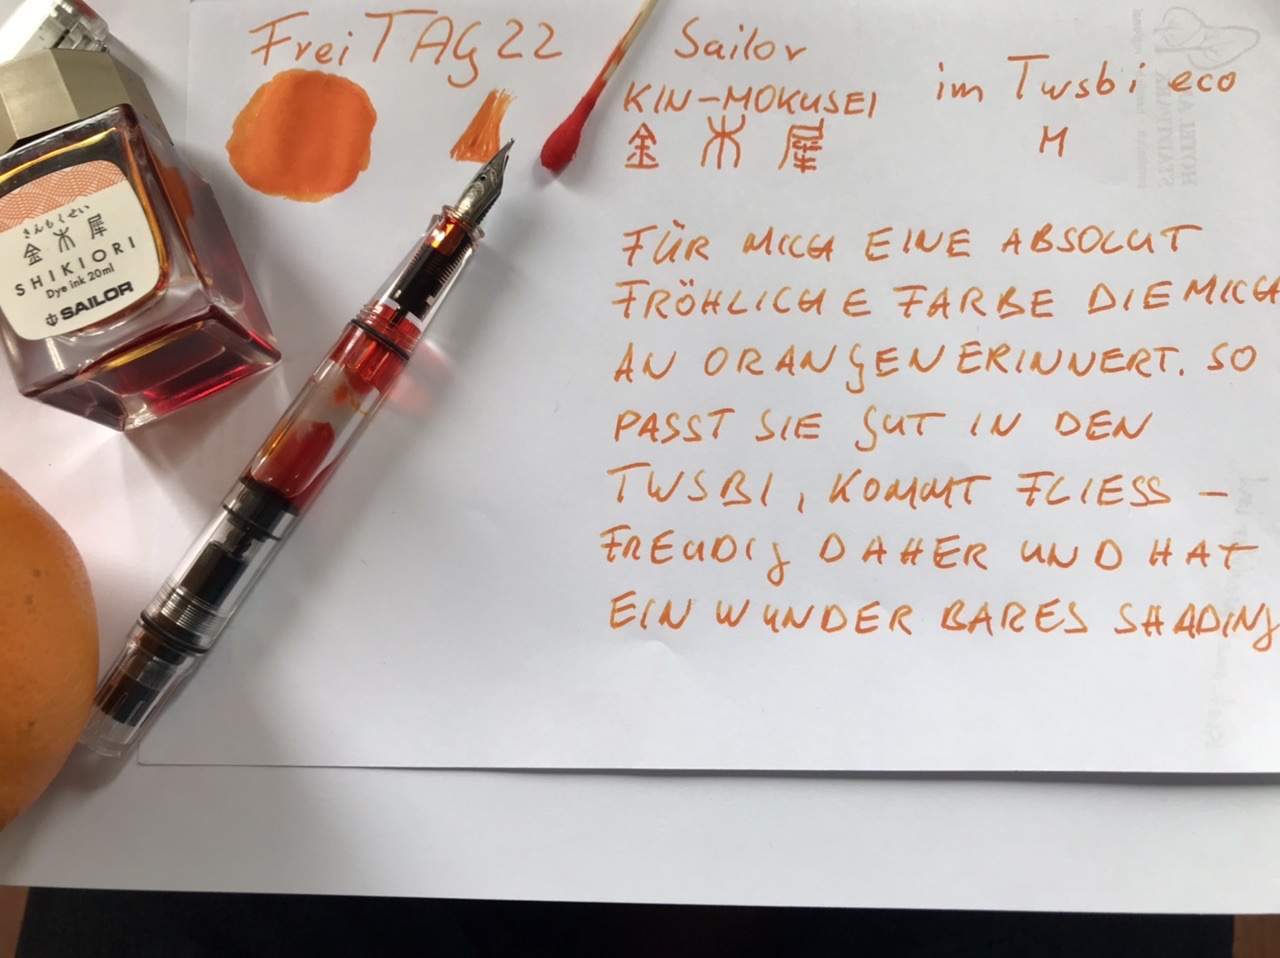 FreiTAG 22
Sailor
KIN-MOKUSEI
金 木 犀
im Twsbi eco
M
FÜR MICH EINE ABSOLUT
FRÖHLICHE FARBE DIE MICH
AN ORANGEN ERINNERT. SO
PASST SIE GUT IN DEN
TWSBI, KOMMT FLIESS -
FREUDIG DAHER UND HAT
EIN WUNDERBARES SHADING
きんもくせい
金 木 犀
SHIKIORI
Dye ink 20ml
SAILOR